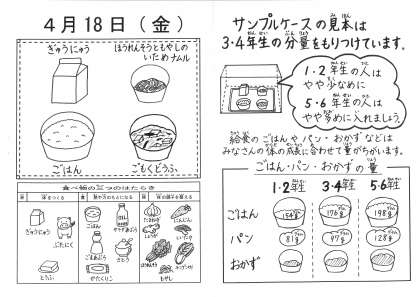 4月18日(金)
ぎゅうにゅう
ほうれんそうともやしの
いためナムル
ごはん
ごもくどうふ
食べ物の三つのはたらき
ぎゅうにゅう
ぶたにく
とうふ
ごはん
ごまあぶら
さとう
かたくりこ
にんじん
しょうが
もやし
サンプルケースの見本は
3・4年生の分量をもりつけています。
1・2年生の人は
やや少なめに
5・6年生の人は
やや多めに入れましょう。
給食のごはんやパン・おかずなどは
みなさんの体の成長に合わせて量がちがいます。
ごはん・パン・おかずの量
1・2年生 3・4年生 5・6年生
ごはん 154g 176g 198g
パン 81g 97g 128g
おかず